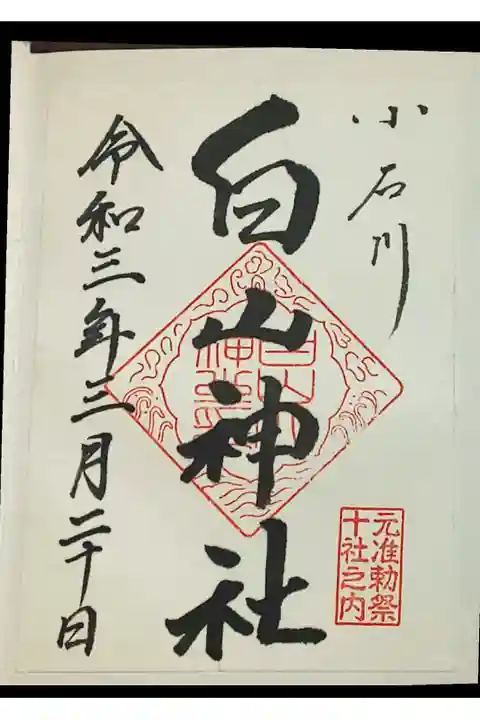 小石川
白山神社
令和三年三月二十日
元准勅祭
十社之内